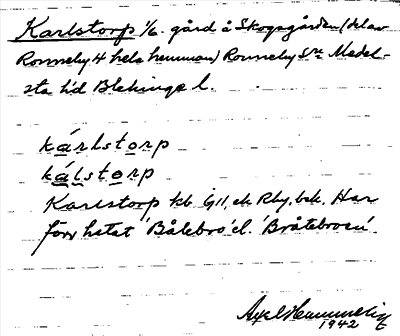 Karlstorp 1/6 gård å Skogsgården (del av
Ronneby 4 hela hemman) Ronneby sn Medel-
sta hd Blekinge l.
kárlstorp
kálstorp
Karlstorp kb. G11, ek. Rby, bek. Har
förr hetat 'Bålebro' el. 'Bråtebron'.
Axel
1942